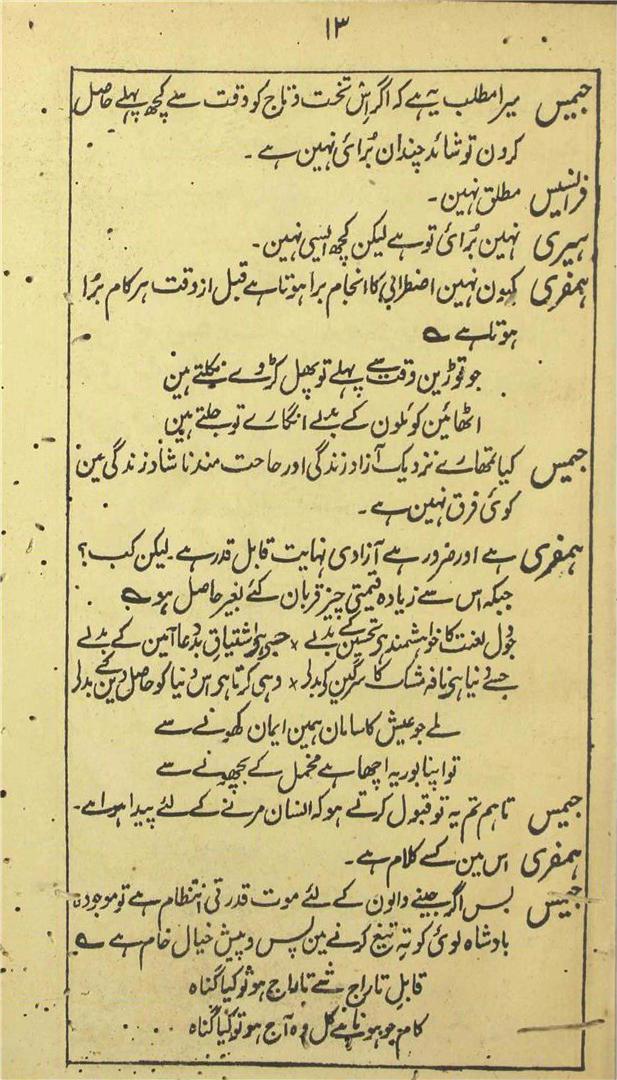 ۱۳
جیمس میرا مطلب یہ ہے کہ اگر اس تخت و تاج کو وقت سے کچھ پہلے حاصل
کرون تو شائد چندان بُرائی نہین ہے ۔
فرانسیس مطلق نہین ۔
ہیری نہین بُرائی تو ہے لیکن کچھ ایسی نہین ۔
ہمفری کیون نہین اضطرابی کا انجام برا ہوتا ہے قبل از وقت ہر کام بُرا
ہوتا ہے ؎
جو توڑین وقت سے پہلے تو پھل کڑوے نکلتے ہین
اٹھائین کوئلون کے بدلے انگارے تو جلتے ہین
جیمس کیا تمھارے نزدیک آزاد زندگی اور حاجت مند ناشاد زندگی مین
کوئی فرق نہین ہے ۔
ہمفری ہے اور ضرور ہے آزادی نہایت قابل قدر ہے ۔ لیکن کب ؟
جبکہ اس سے زیادہ قیمتی چیز قربان کئے بغیر حاصل ہو ؎
جو دل لعنت کا خواہشمند ہی تحسین کے بدلے × جسے ہی اشتیاق بدعا آمین کے بدلے
جسے دنیا ہی نافہ مشک کا سرگین کو بدلے × وہی کرتا ہی اس دنیا کو حاصل دین کے بدلے
ملے جو عیش کا سامان ہمین ایمان کھونے سے
تو اپنا بوریہ اچھا ہے مخمل کے بچھونے سے
جیمس تاہم تم یہ تو قبول کرتے ہو کہ انسان مرنے کے لئے پیدا ہوا ہے ۔
ہمفری اس مین کسے کلام ہے ۔
جیمس بس اگر جینے والون کے لئے موت قدرتی انتظام ہے تو موجودہ
بادشاہ لوئی کو تہ تیغ کرنے مین پس و پیش خیال خام ہے ؎
قابل تاراج شے تاراج ہو تو کیا گناہ
کام جو ہونا ہے کل وہ آج ہو تو کیا گناہ